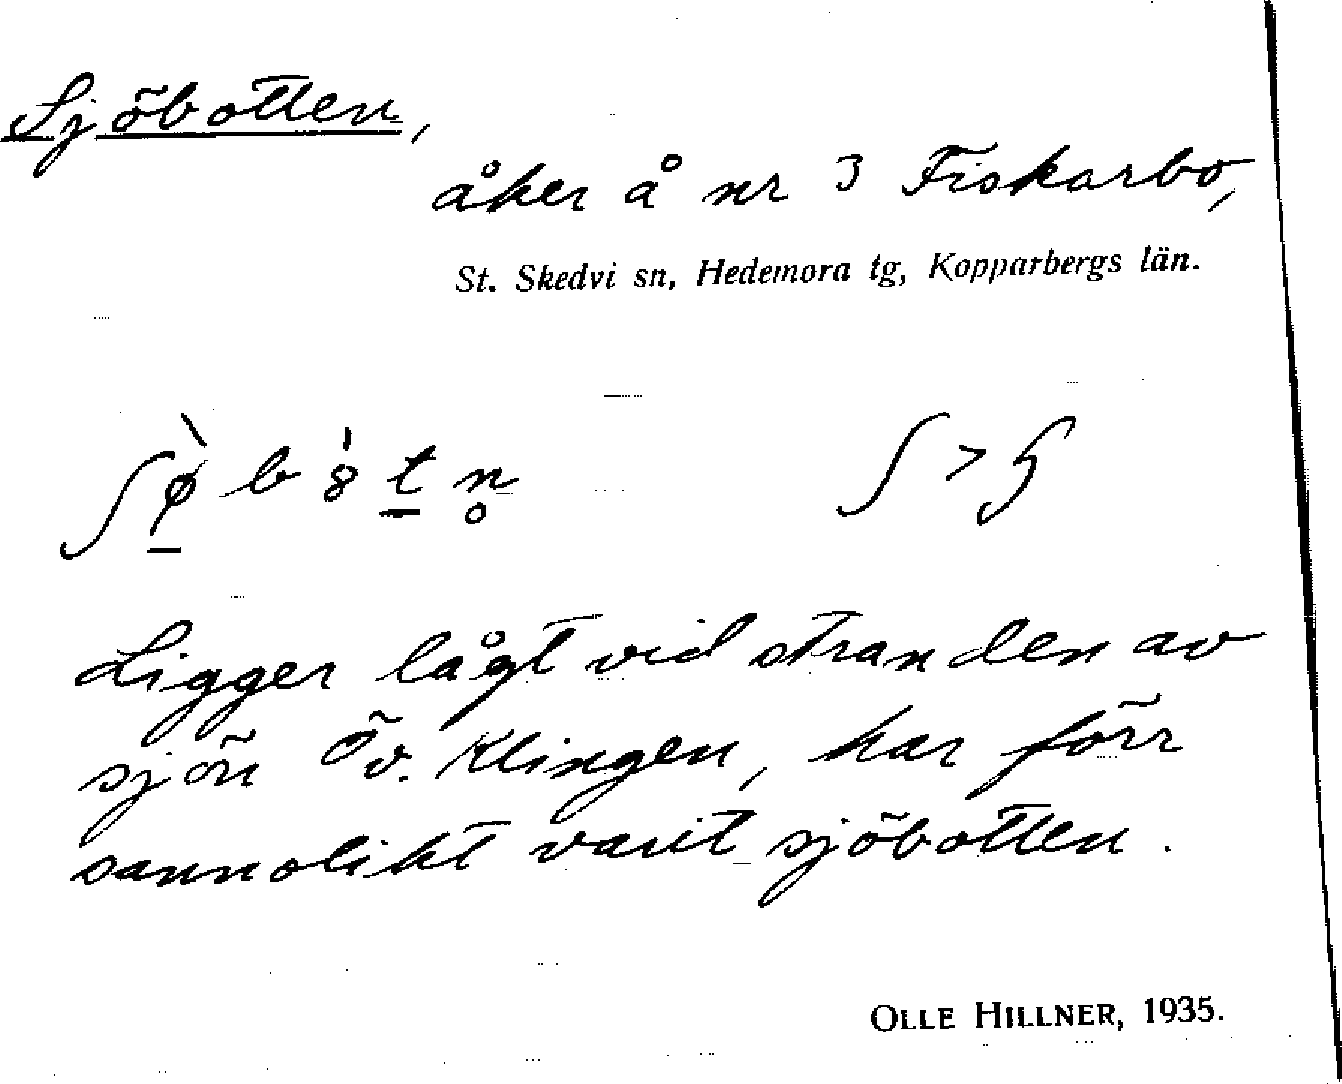 Sjöbotten,
åker å nr 3 Fiskarbo,
St. Skedvi sn, Hedemora tg, Kopparbergs län.
ʃø̠̀b8̍t̠n̥ ʃ>ʃ
Ligger lågt vid stranden av
sjön Öv. Klingen, har förr
sannolikt varit sjöbotten.
OLLE HILLNER, 1935.